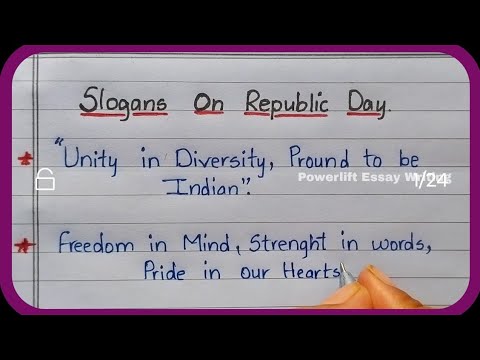 Slogans On Republic Day.
"Unity in Diversity, Pround to be
Indian".
Powerlift Essay Writing
1/24
Freedom in Mind, Strenght in words,
Pride in our Hearts